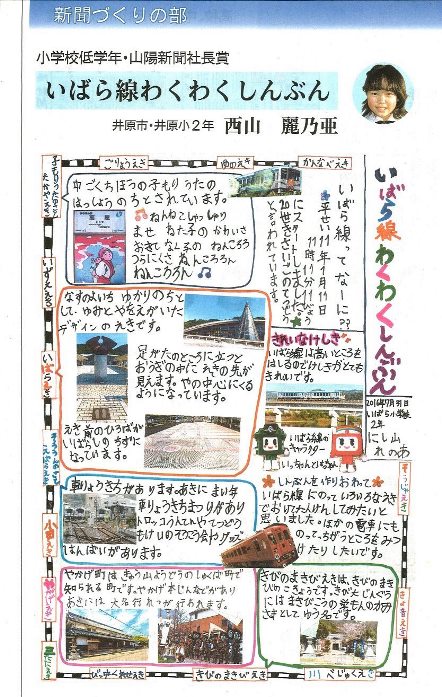 新聞づくりの部
小学校低学年・山陽新聞社長賞
いばら線わくわくしんぶん
井原市・井原小2年 西山 麗乃亜
ごりょうえき
ゆのえき
かんなべえき
いばら線わくわくしんぶん
2016年7月31日
いばら小学校
2年
にし山
れのあ
いばら線ってなーに??
平せい11年1月11日
11時11分11びょう
にスタートしました。
20世きさいごのてつどう
といわれています。
中ごくちほうの子もりうたの
はっしょうのちとされています。
ねんねこしゃっしゃりませ
ねた子の かわいさ
おきて なく子の ねんころろ
つらにくさ ねんころろん
ねんころろん
きれいなけしき
いばら線は高いところを
はしるのでけしきがとても
きれいです。
いばら線の
キャラクター
なすのよいち ゆかりのちと
して、ゆみとやをえがいた
デザインの えきです。
足がたのところに立つと
おうぎの中に えきの先が
見えます。やの中心にくる
ようになっています。
えき前のひろばが
いばらしの ちずに
なっています。
しんぶんを作りおわって
いばら線にのっていろいろなえき
でおりてたんけんしてみたいと
思いました。ほかの電車にも
のって、ちがうところをみつ
けたりしたいです。
車りょうきちが あります。あきに まい年
車りょうきちまつりがあり
トロッコうんてんやてつどう
もけいの そうこう会やグッズ
はんばいが あります。
やかげ町は、きゅう山ようどうのしゅくば町で
知られる 町です。やかげ本じんなどがあり
あきには 大名行れつが行われます。
きびのまきびえきは、きびのまき
びの こきょうです。きびた じんぐう
には まきびこうの
さきとして、ゆう名です。
いずええき
いばらえき
小田えき
やかげえき
三谷えき
きよねえき
びっちゅうくれせえき
きびのまきびえき
川べじゅくえき